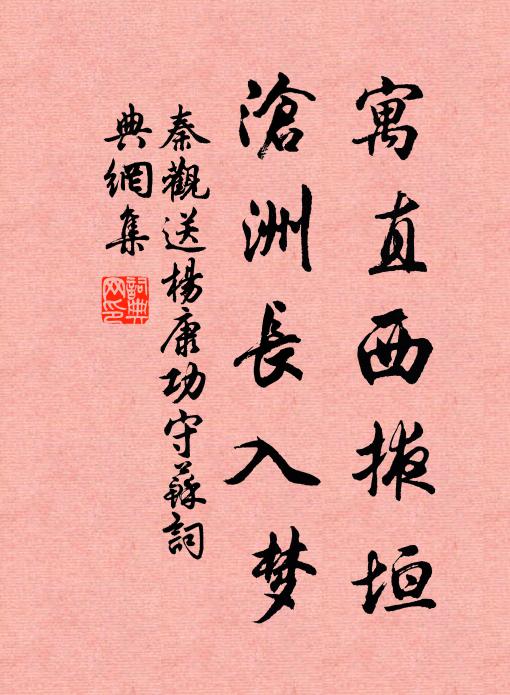 寓直西掖垣
滄洲長入梦
秦觀送楊康功守蘇詞
典網集
詞典網印